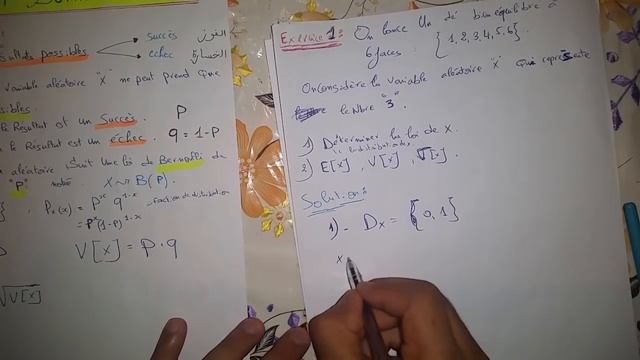 Résultats possibles
succès الفوز
echec الخسارة
variable aléatoire "X" ne peut prend que
le Résultat est un Succès. P
le Résultat est un échec. q = 1-P
aléatoire Suit une loi de Bernoulli de
"P" note X ~> B(P).
Pₓ(x) = Pˣ q¹⁻ˣ
= Pˣ(1-P)¹⁻ˣ
V[X] = P.q
√V[X]
Exercice 1: On lance Un dé bien équilibré à
6 faces: {1, 2, 3, 4, 5, 6}
On considère la variable aléatoire "X" qui représente
le Nbre "3".
1) Déterminer la loi de X.
2) E[X], V[X], √[X].
Solution:
1) - Dx = {0, 1}
X